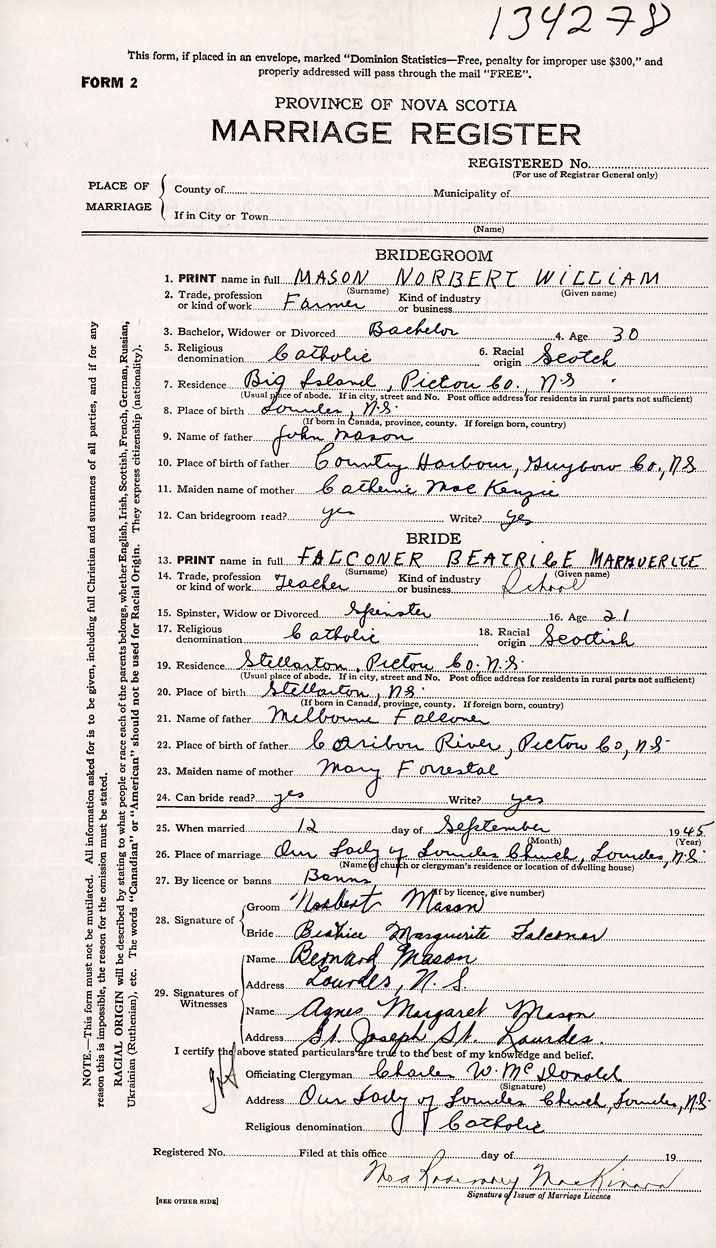 134278
This form, if placed in an envelope, marked "Dominion Statistics—Free, penalty for improper use $300," and
properly addressed will pass through the mail "FREE".
FORM 2
PROVINCE OF NOVA SCOTIA
MARRIAGE REGISTER
REGISTERED No.
(For use of Registrar General only)
PLACE OF MARRIAGE
County of Municipality of
If in City or Town
(Name)
BRIDEGROOM
1. PRINT name in full MASON NORBERT WILLIAM
(Surname) (Given name)
2. Trade, profession or kind of work Farmer Kind of industry or business
3. Bachelor, Widower or Divorced Bachelor 4. Age 30
5. Religious denomination Catholic 6. Racial origin Scotch
7. Residence Big Island, Pictou Co., N.S
(Usual place of abode. If in city, street and No. Post office address for residents in rural parts not sufficient)
8. Place of birth Lourdes, N.S.
(If born in Canada, province, county. If foreign born, country)
9. Name of father John Mason
10. Place of birth of father Country Harbour, Guysboro Co., N.S
11. Maiden name of mother Catherine MacKenzie
12. Can bridegroom read? yes Write? yes
BRIDE
13. PRINT name in full FALCONER BEATRICE MARGUERITE
(Surname) (Given name)
14. Trade, profession or kind of work Teacher Kind of industry or business School
15. Spinster, Widow or Divorced Spinster 16. Age 21
17. Religious denomination Catholic 18. Racial origin Scottish
19. Residence Stellarton, Pictou Co. N.S.
(Usual place of abode. If in city, street and No. Post office address for residents in rural parts not sufficient)
20. Place of birth Stellarton, N.S.
(If born in Canada, province, county. If foreign born, country)
21. Name of father Melbourne Falconer
22. Place of birth of father Caribou River, Pictou Co, N.S.
23. Maiden name of mother Mary Forrestal
24. Can bride read? yes Write? yes
25. When married 12 day of September 1945
(Month) (Year)
26. Place of marriage Our Lady of Lourdes Church, Lourdes, N.S.
(Name of church or clergyman's residence or location of dwelling house)
27. By licence or banns Banns
(If by licence, give number)
28. Signature of
Groom Norbert Mason
Bride Beatrice Marguerite Falconer
29. Signatures of Witnesses
Name Bernard Mason
Address Lourdes, N.S.
Name Agnes Margaret Mason
Address St. Joseph St. Lourdes.
I certify the above stated particulars are true to the best of my knowledge and belief.
Officiating Clergyman Charles W. McDonald
(Signature)
Address Our Lady of Lourdes Church, Lourdes, N.S
Religious denomination Catholic
Registered No. Filed at this office day of 19
Rosemary MacKinnon
Signature of Issuer of Marriage Licence
[SEE OTHER SIDE]
NOTE.—This form must not be mutilated. All information asked for is to be given, including full Christian and surnames of all parties, and if for any
reason this is impossible, the reason for the omission must be stated.
RACIAL ORIGIN will be described by stating to what people or race each of the parents belongs, whether English, Irish, Scottish, French, German, Russian,
Ukrainian (Ruthenian), etc. The words "Canadian" or "American" should not be used for Racial Origin. They express citizenship (nationality).